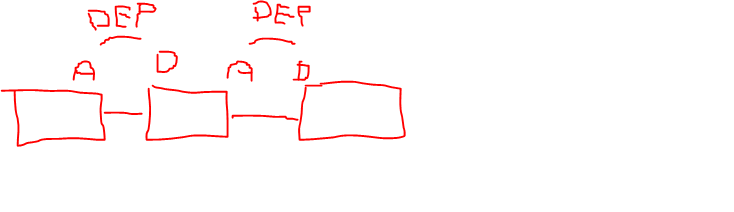 DEP DEP
A D A D